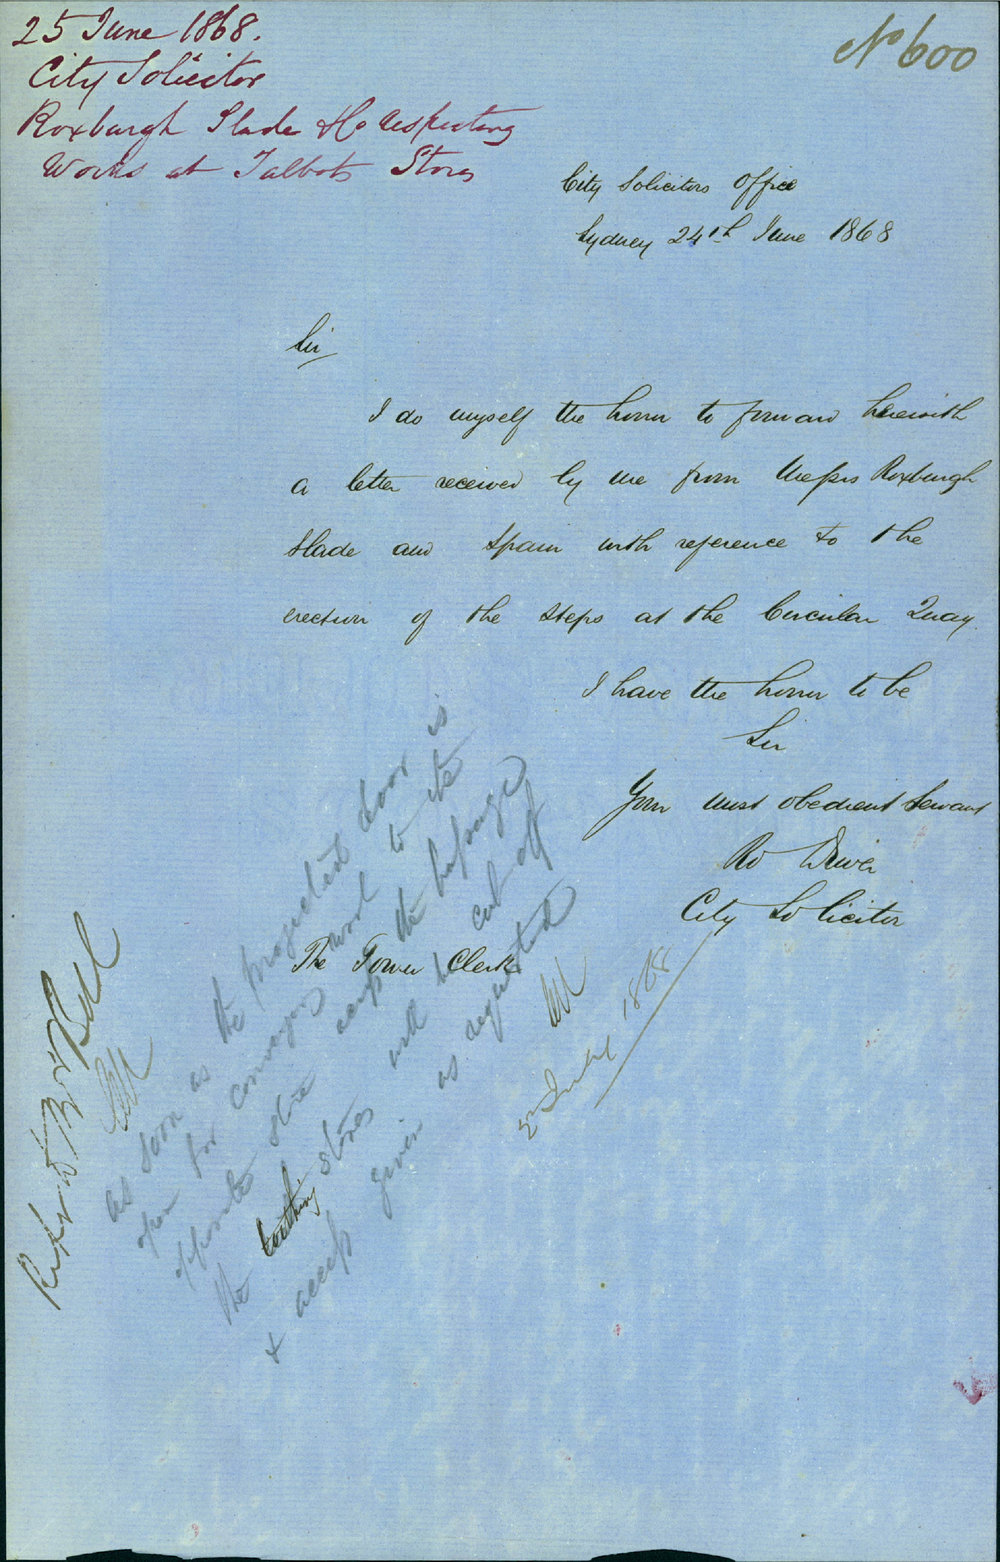 25 June 1868.
City Solicitor
Roxburgh Slade & Co respecting
Works at Talbots Stores
No 600
City Solicitors Office
Sydney 24th June 1868
Sir
I do myself the honor to forward herewith
a letter received by me from Messrs Roxburgh
Slade and Spain with reference to the
erection of the steps at the Circular Quay.
I have the honor to be
Sir
Your most obedient Servant
Rd Driver
City Solicitor
The Town Clerk
as soon as the projected door is
open for conveying wool to the
opposite store the passage
the stores will be cut off
& access given as requested
2nd July 1868
Refer to Bell